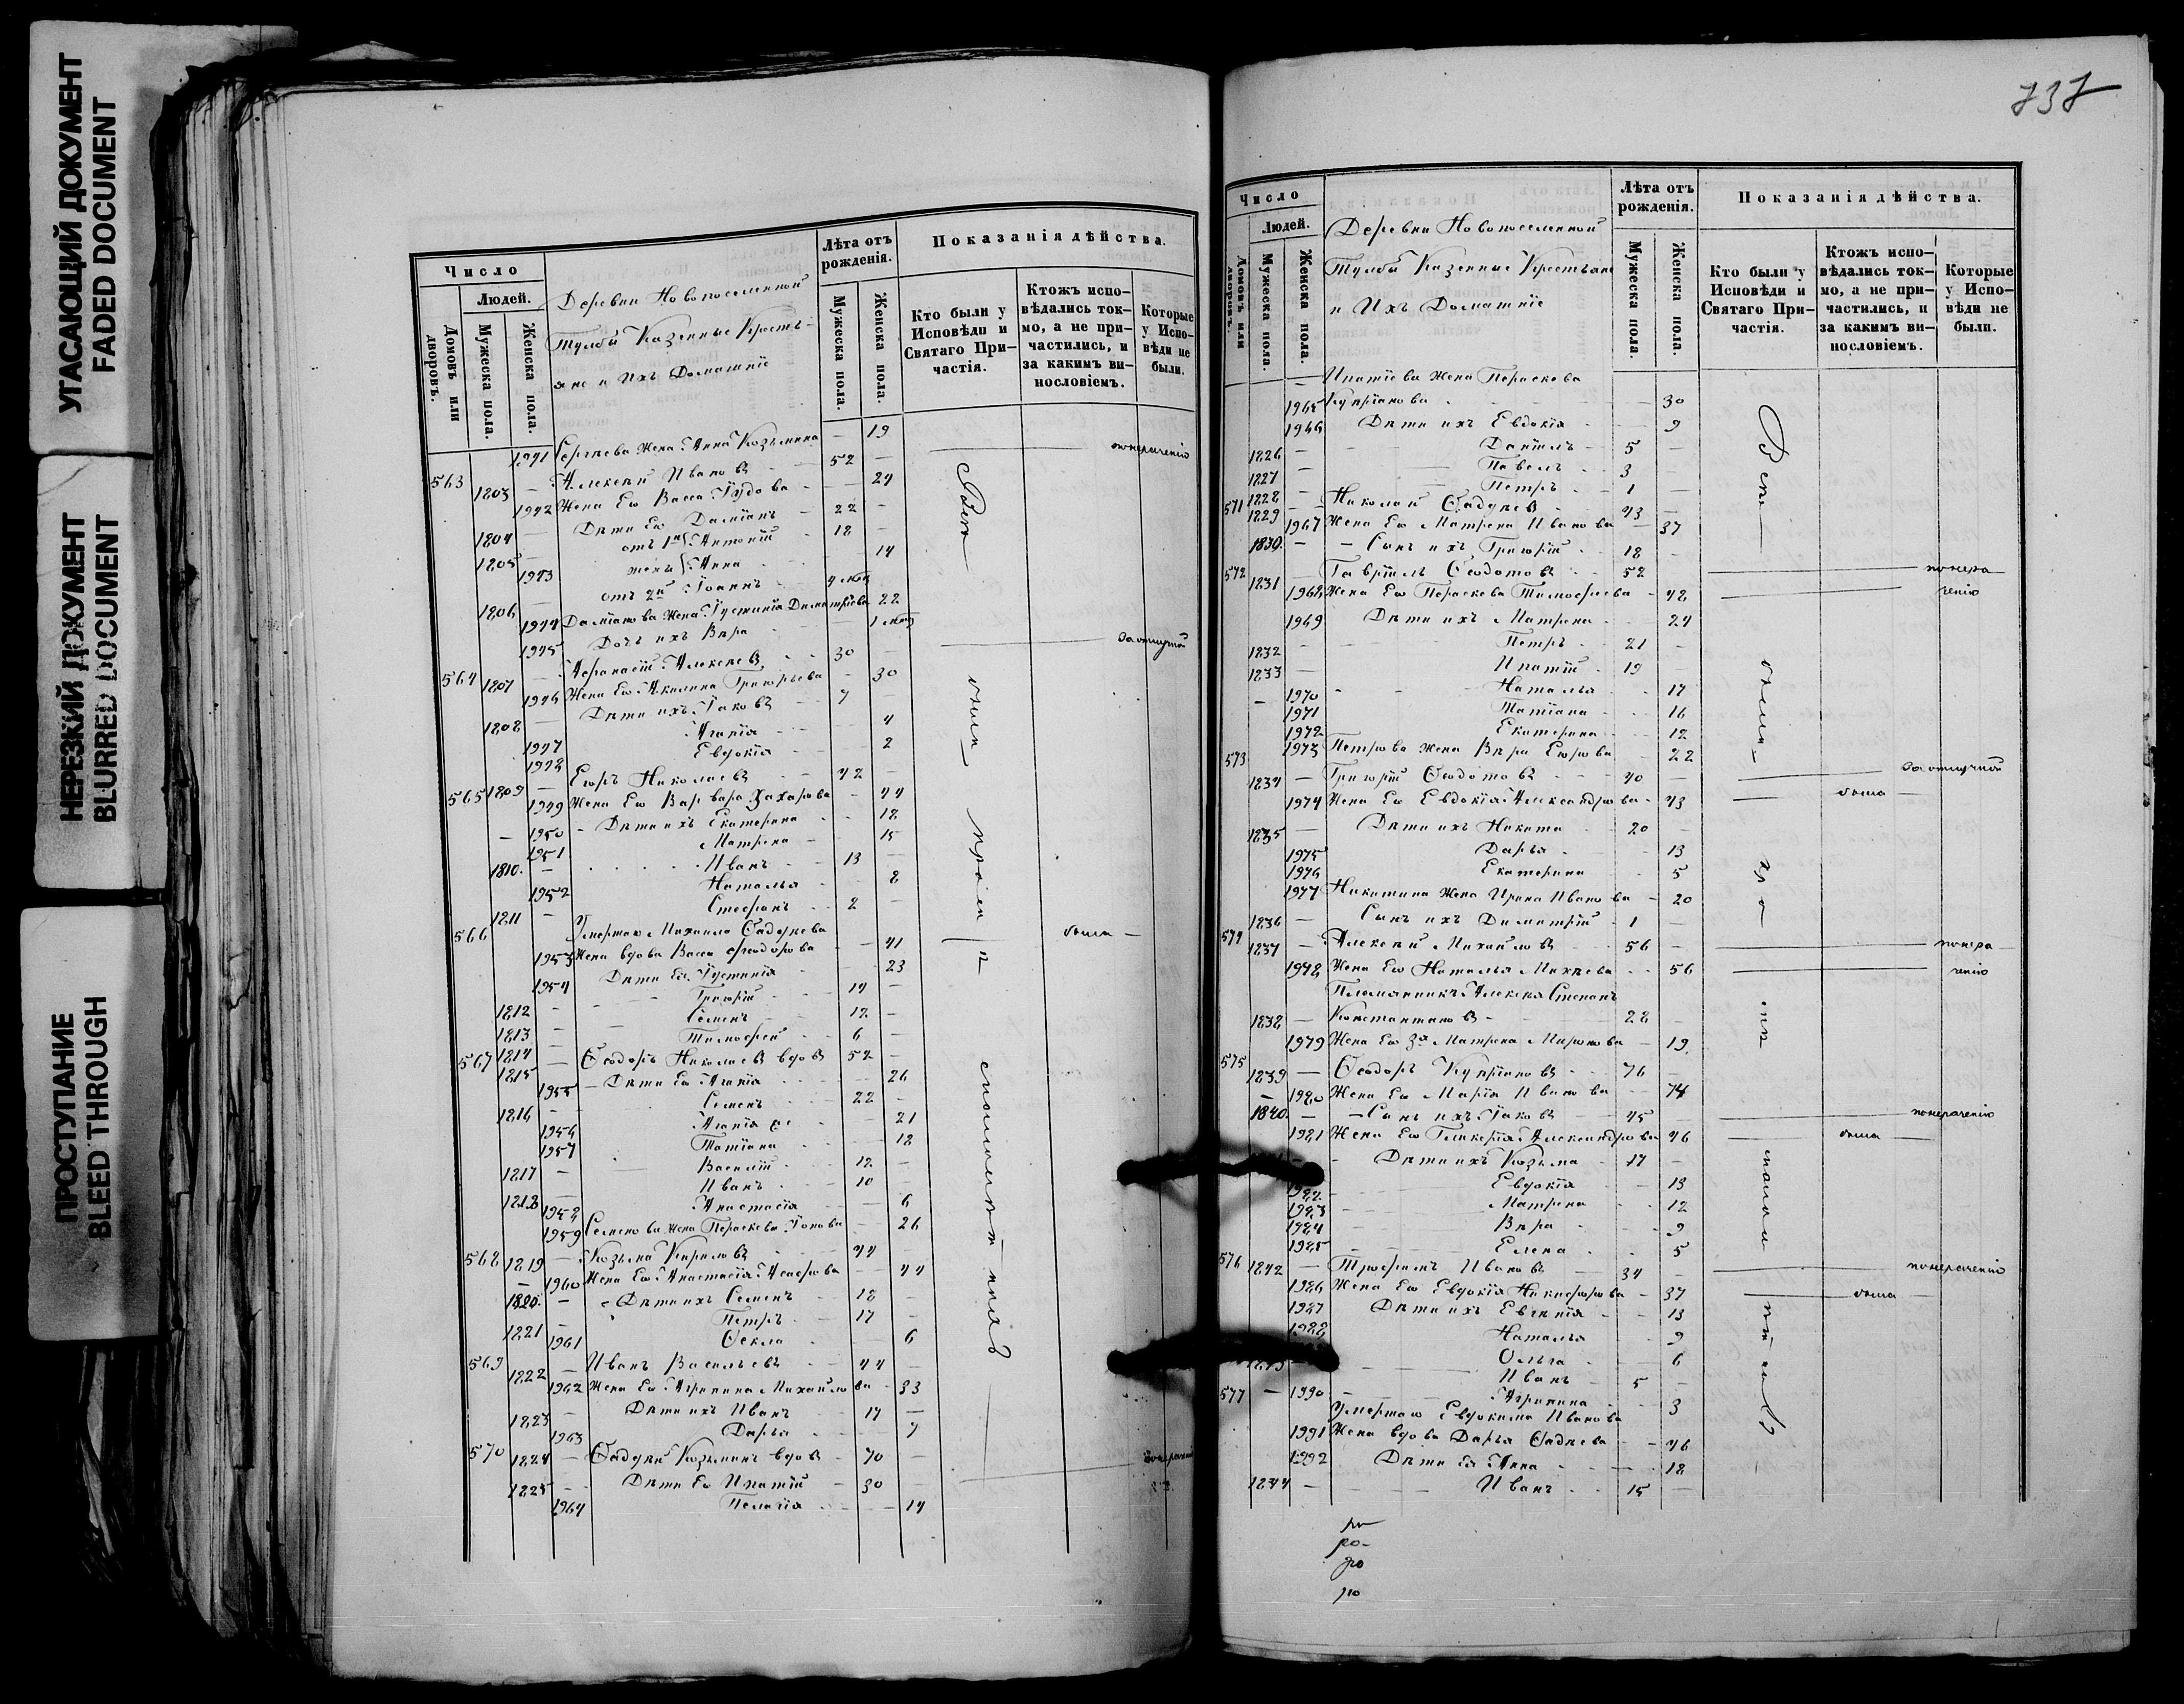 УГАСАЮЩИЙ ДОКУМЕНТ
FADED DOCUMENT
НЕРЕЗКИЙ ДОКУМЕНТ
BLURRED DOCUMENT
ПРОСТУПАНИЕ
BLEED THROUGH
Число
Людей.
Домовъ или дворовъ.
Мужеска пола.
Женска пола.
Деревни Новопоселенной
Тумбы Казенные Кресть-
яне и Ихъ Домашніе
Лѣта отъ рожденія.
Мужеска пола.
Женска пола.
Показанія дѣйства.
Кто были у Исповѣди и Святаго Причастія.
Ктожъ исповѣдались токмо, а не причастились, и за какимъ винословіемъ.
Которые у Исповѣди не были.
1941 Сергѣева Жена Анна Козьмина — 19
563 1803 — Алексѣй Ивановъ 52 — понераченію
1942 Жена Его Васса Іудова — 24
1804 — Дѣти Его Даміанъ 22 —
1805 — отъ 1й Антоній 18 —
1943 жены Анна — 14
1806 — отъ 2й Іоаннъ 4 —
1944 Даміанова Жена Іустинія Димитріева 22
1945 Дочь ихъ Вѣра — 1
564 1807 — Афанасій Алексѣевъ 30 — Заотлучкой
1946 Жена Его Акилина Григорьева — 30
1808 — Дѣти ихъ Іаковъ 7 —
1947 Агапія 4
1948 Евдокія 2
565 1809 — Егоръ Николаевъ 42 —
1949 Жена Его Варвара Захарова — 44
1950 — Дѣти ихъ Екатерина 18
1951 Матрена — 15
1810. — Иванъ 13 —
1952 Наталья 8
1811 — Стефанъ 2 —
566 Умершаго Михаила Фадѣева
1953 Жена вдова Васса Феодорова — 41 была —
1954 Дѣти Ея Іустинія 23
1812 — Григорій 14 —
1813 — Семенъ 12 —
1814 — Тимофей 6 —
567 1815 — Ѳеодоръ Николаевъ вдовъ 52 —
1955 — Дѣти Его Агапія — 26
1816 — Семенъ 22 —
1956 Агапія 21
1957 Татіана 18
1817 — Василій 12 —
1818 — Иванъ 10 —
1958 Анастасія — 6
1959 Семенова жена Параскева Іонова — 26
568 1819 — Козьма Кириловъ 44
1960 Жена Его Анастасія Агафова — 44
1820. — Дѣти ихъ Семенъ 18 —
1821 — Петръ 17 —
1961 Ѳекла — 6
569 1822 — Иванъ Васильевъ 44 —
1962 Жена Его Агрипина Михайлова — 33
1823 — Дѣти ихъ Иванъ 17 —
1963 Дарья — 7
570 1824 — Фадѣй Козьминъ вдовъ 70 —
1825 — Дѣти Его Ипатій 30 — понераченію
1964 Пелагія — 14
Всѣ были у исповѣди и св. причастія
737
Число
Людей.
Домовъ или дворовъ.
Мужеска пола.
Женска пола.
Деревни Новопоселенной
Тумбы Казенные Крестьяне
и Ихъ Домашніе
Лѣта отъ рожденія.
Мужеска пола.
Женска пола.
Показанія дѣйства.
Кто были у Исповѣди и Святаго Причастія.
Ктожъ исповѣдались токмо, а не причастились, и за какимъ винословіемъ.
Которые у Исповѣди не были.
Ипатіева Жена Параскева
1965 Купріанова — 30
1966 Дѣти ихъ Евдокія 9
1826 — Даніилъ 5 —
1827 — Павелъ 3
1828 — Петръ 1
571 1829 — Николай Фадѣевъ 43 —
1967 Жена Его Матрена Иванова — 37
1830. — — Сынъ ихъ Григорій 18 —
572 1831 — Гавріилъ Ѳедотовъ 52 понера-
1968 Жена Его Параскева Тимофеева — 48 ченію
1969 Дѣти ихъ Матрена 24
1832 — Петръ 21 —
1833 — Ипатій 19 —
1970 Наталья 17
1971 Татіана 16
1972 Екатерина 12
1973 Петрова жена Вѣра Егорова — 22
573 1834 — Григорій Ѳедотовъ 40 — Заотлучкой
1974 Жена Его Евдокія Александрова — 43 была —
1835 — Дѣти ихъ Никита 20 —
1975 Дарья 13
1976 Екатерина 5
1977 Никитина Жена Ирина Иванова — 20
1836 — Сынъ ихъ Димитрій 1 —
574 1837 — Алексѣй Михайловъ 56 — понера-
1978 Жена Его Наталья Михѣева 56 ченію
Племянникъ Алексѣя Степанъ
1838 — Константиновъ 28 —
1979 Жена Его 3я Матрена Миронова — 19.
575 1839 — Ѳеодоръ Купріановъ 76 —
1980 Жена Его Марія Иванова — 74
1840. — — Сынъ ихъ Іаковъ 45 понераченію
1981 Жена Его Гликерія Александрова 46 была
Дѣти ихъ Козьма 17 —
1982 Евдокія — 13
1983 Матрена 12
1984 Вѣра 9
1985 Елена 5
576 1842 — Трофимъ Ивановъ 34 — понераченію
1986 Жена Его Евдокія Никифорова — 37 была
1987 Дѣти ихъ Евгенія — 13
1988 Наталья 9
Ольга — 6
1843 Иванъ 5 —
1990 Агрипина 3
577 Умершаго Евдокима Иванова
1991 Жена вдова Дарья Фадѣева — 46
1992 Дѣти Ея Анна 18
1844 — Иванъ 15 —